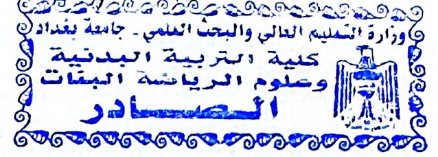 وزارة التعليم العالي والبحث العلمي - جامعة بغداد
كلية التربية البدنية
وعلوم الرياضة للبنات
الصادر